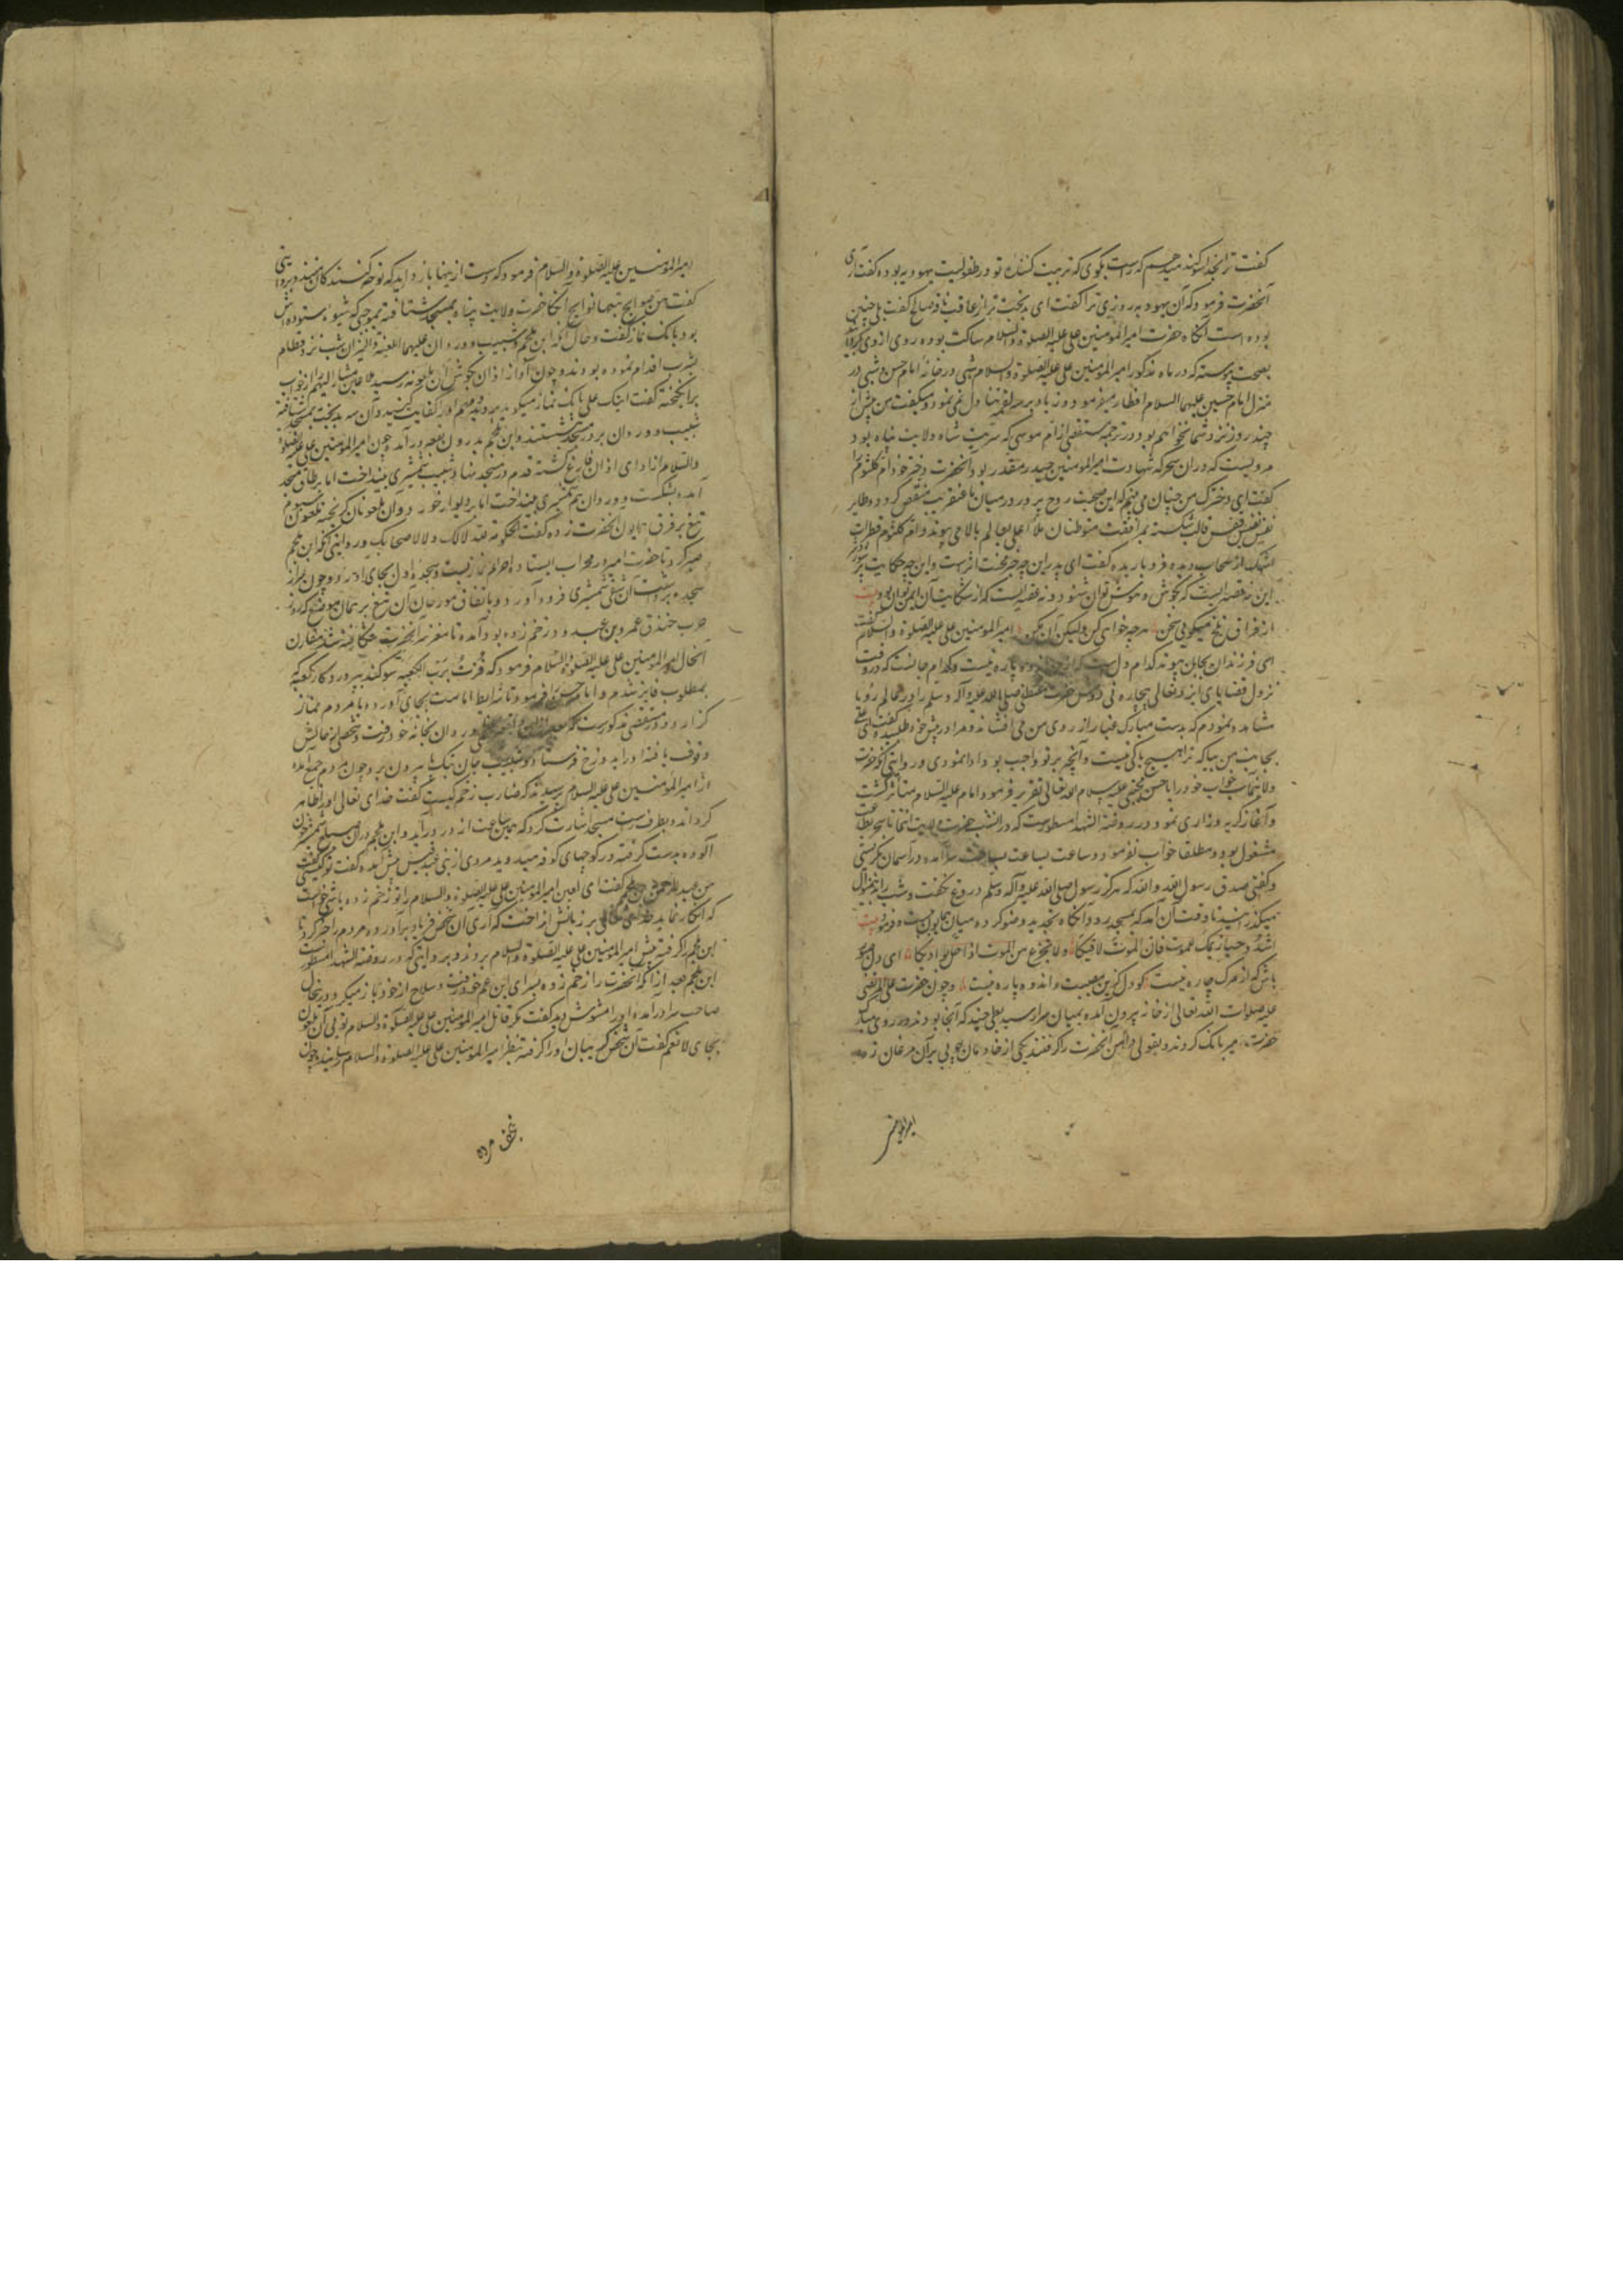 گفت ترا بخدا سوگند میدهم که راست بگوی که تربیت کننده تو در طفولیت یهودیه بوده گفت آری
آنحضرت فرمود که آن یهودیه روزی ترا گفت ای بدبخت تر از عاقر ناقه صالح گفت بلی چنین
بوده است آنگاه حضرت امیرالمؤمنین علی علیه الصلوة والسلام ساکت بوده روی از وی بگردانید
بصحت پیوسته که در ماه مذکور امیرالمؤمنین علی علیه الصلوة والسلام شبی در خانهٔ امام حسن و شبی در
منزل امام حسین علیهما السلام افطار میفرمود و زیاده بر سه لقمه تناول نمی نمود و میگفت من پیش از
چند روز نزد شما نخواهم بود و در ترجمه مستقصی از ام موسی که سریت شاه ولایت پناه بود
مرویست که در ان سحر که شهادت امیرالمؤمنین حیدر مقدر بود آنحضرت دختر خود ام کلثوم را
گفت ای دخترک من چنان می بینم که این صحبت روح پرور در میان ما عنقریب منقص گردد و طایر
نفیس نفس قفس قالب شکسته بمرافقت متوطنان ملأ اعلی بعالم بالا می پیوند و ام کلثوم قطرات
اشک از سحاب دیده فرو باریده گفت ای پدر این چه خبر محنت اثرست و این چه حکایت پر
این نه قصه ایست که بگوش هوش توان شنود و نه قضیه ایست که از شکایت آن ایمن توان بود بیت
از فراق تلخ میگویی سخن هرچه خواهی کن ولیکن آن مکن امیرالمؤمنین علی علیه الصلوة والسلام گفت
ای فرزندان بجان پیوند کدام دل است که از پاره نیست و کدام جانست که در وقت
نزول قضایای ایزد تعالی بیچاره نی دوش حضرت مصطفی صلی الله علیه وآله وسلم را در عالم رؤیا
مشاهده نمودم که بدست مبارک غبار از روی من می افشاند و مرا در پیش خود طلبید و گفت ای علی
بجانب من بیا که ترا هیچ باکی نیست و آنچه بر تو واجب بود ادا نمودی و روایتی آنکه حضرت
ولایتمآب خواب خود را با حسن مجتبی علیه سلام الله تعالی تقریر فرمود امام علیه السلام متأثر گشت
و آغاز گریه و زاری نمود و در روضة الشهدا مسطورست که در انشب حضرت ولایت انتما تا سحر بطاعت
مشغول بود و مطلقا خواب نفرمود و ساعت بساعت بر آمده در آسمان نگریستی
و گفتی صدق رسول الله والله که هرگز رسول صلی الله علیه وآله وسلم دروغ نگفت و شب را بدین منوال
میگذرانید تا وقت آن آمد که بمسجد رود آنگاه تجدید وضو کرده میان همایون بست و فرمود بیت
اشدد حیازیمک للموت فان الموت لاقیکا ولا تجزع من الموت اذا حل بوادیکا ای دل صبور
باش که از مرگ چاره نیست کو دل کزین مصیبت و اندوه پاره نیست و چون حضرت علی المرتضی
علیه صلوات الله تعالی از خانه بیرون آمده بمیان سرا رسید بطی چند که آنجا بودند در روی مبارک
حضرت امیر بانک کردند و بقولی دامن آنحضرت را گرفتند یکی از خادمان چوبی بر آن مرغان زد
امیرالمؤمنین
امیرالمؤمنین علیه الصلوة والسلام فرمود که دست از اینها باز دارید که نوحه کنندگان منند و بروایتی
گفت هن صوایح تتبعها نوایح آنگاه حضرت ولایت پناه بمسجد شتافته بموجبی که شیوهٔ ستوده اش
بود بانک نماز گفت و حال آنکه ابن ملجم و شبیب و وردان علیهم اللعنة والنیران شب نزد قطام
بشرب اقدام نموده بودند و چون آواز اذان بگوش آن ملعونه رسید ملاعین مشار الیهم را از خواب
برانگیخته گفت اینک علی بانک نماز میگوید بروید و مهم او را کفایت کنید و آن سه بدبخت بمسجد شتافته
شبیب و وردان بر در مسجد نشستند و ابن ملجم بدرون بقعه درآمد و چون امیرالمؤمنین علی علیه الصلوة
والسلام از ادای اذان فارغ گشته قدم در مسجد نهاد شبیب شمشیری بینداخت اما بر طاق مسجد
آمده بشکست و وردان هم شمشیری بینداخت اما بر دیوار خورد و آن ملعونان گریخته ملعون سیوم
تیغ بر فرق همایون آنحضرت زده گفت الحکم لله لا لک ولا لاصحابک و روایتی آنکه ابن ملجم
صبر کرد تا حضرت امیر در محراب ایستاده احرام نماز بست و سجدهٔ اول بجای آورد و چون سر از
سجده برداشت آن شقی شمشیری فرود آورد و باتفاق مورخان آن تیغ بر همان موضع که در روز
حرب خندق عمرو بن عبد ود زخم زده بود آمده تا مغز سر آنحضرت شکافته شد مقارن
آنحال امیرالمؤمنین علی علیه الصلوة والسلام فرمود که فزت برب الکعبه سوگند بپروردگار کعبه که
بمطلوب فایز شدم و امام حسن را فرمود تا شرایط امامت بجای آورد و با مردم نماز
گزارد و در مستقصی مذکورست که وردان بخانه خود رفت و شخصی از حالش
وقوف یافته او را بدوزخ فرستاد و شبیب جان تک پا بیرون برد چون مردم جمع آمده
از امیرالمؤمنین علی علیه السلام پرسیدند که ضارب زخم کیست گفت خدای تعالی او را ظاهر
گرداند و بطرف درِ مسجد اشارت کرد که همین ساعت از در درآید و ابن ملجم در آن صباح شمشیر خون
آلوده بدست گرفته در کوچهای کوفه میدوید مردی از بنی عبد قیس پیش آمده گفت تو کیستی گفت
من عبدالرحمن بن ملجم گفت ای لعین امیرالمؤمنین علی علیه الصلوة والسلام را تو زخم زده باشی خواست
که انکار نماید حق تعالی بر زبانش انداخت که آری آن شخص فریاد برآورده مردم را خبر کرد تا
ابن ملجم را گرفته پیش امیرالمؤمنین علی علیه الصلوة والسلام بردند و بروایتی که در روضة الشهدا مسطورست
ابن ملجم بعد از آنکه آنحضرت را زخم زده بسرای ابن عم خود رفت و سلاح از خود باز میکرد در ینحال
صاحب سرا درآمده او را مشوش دید گفت مگر قاتل امیرالمؤمنین علی علیه الصلوة والسلام تویی آن ملعون
بجای لا نعم گفت آن شخص گریبان او را گرفته بنظر امیرالمؤمنین علی علیه الصلوة والسلام رسانید چون